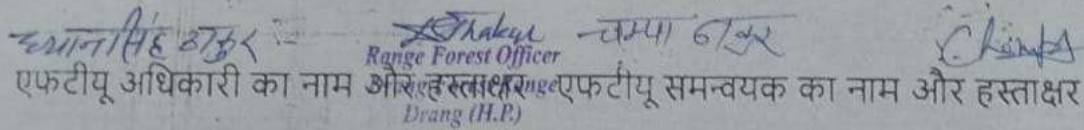 ध्यानसिंह ठाकुर :- Thakur चम्पा ठाकुर
Range Forest Officer
एफटीयू अधिकारी का नाम और हस्ताक्षर एफटीयू समन्वयक का नाम और हस्ताक्षर
Drang (H.P.)